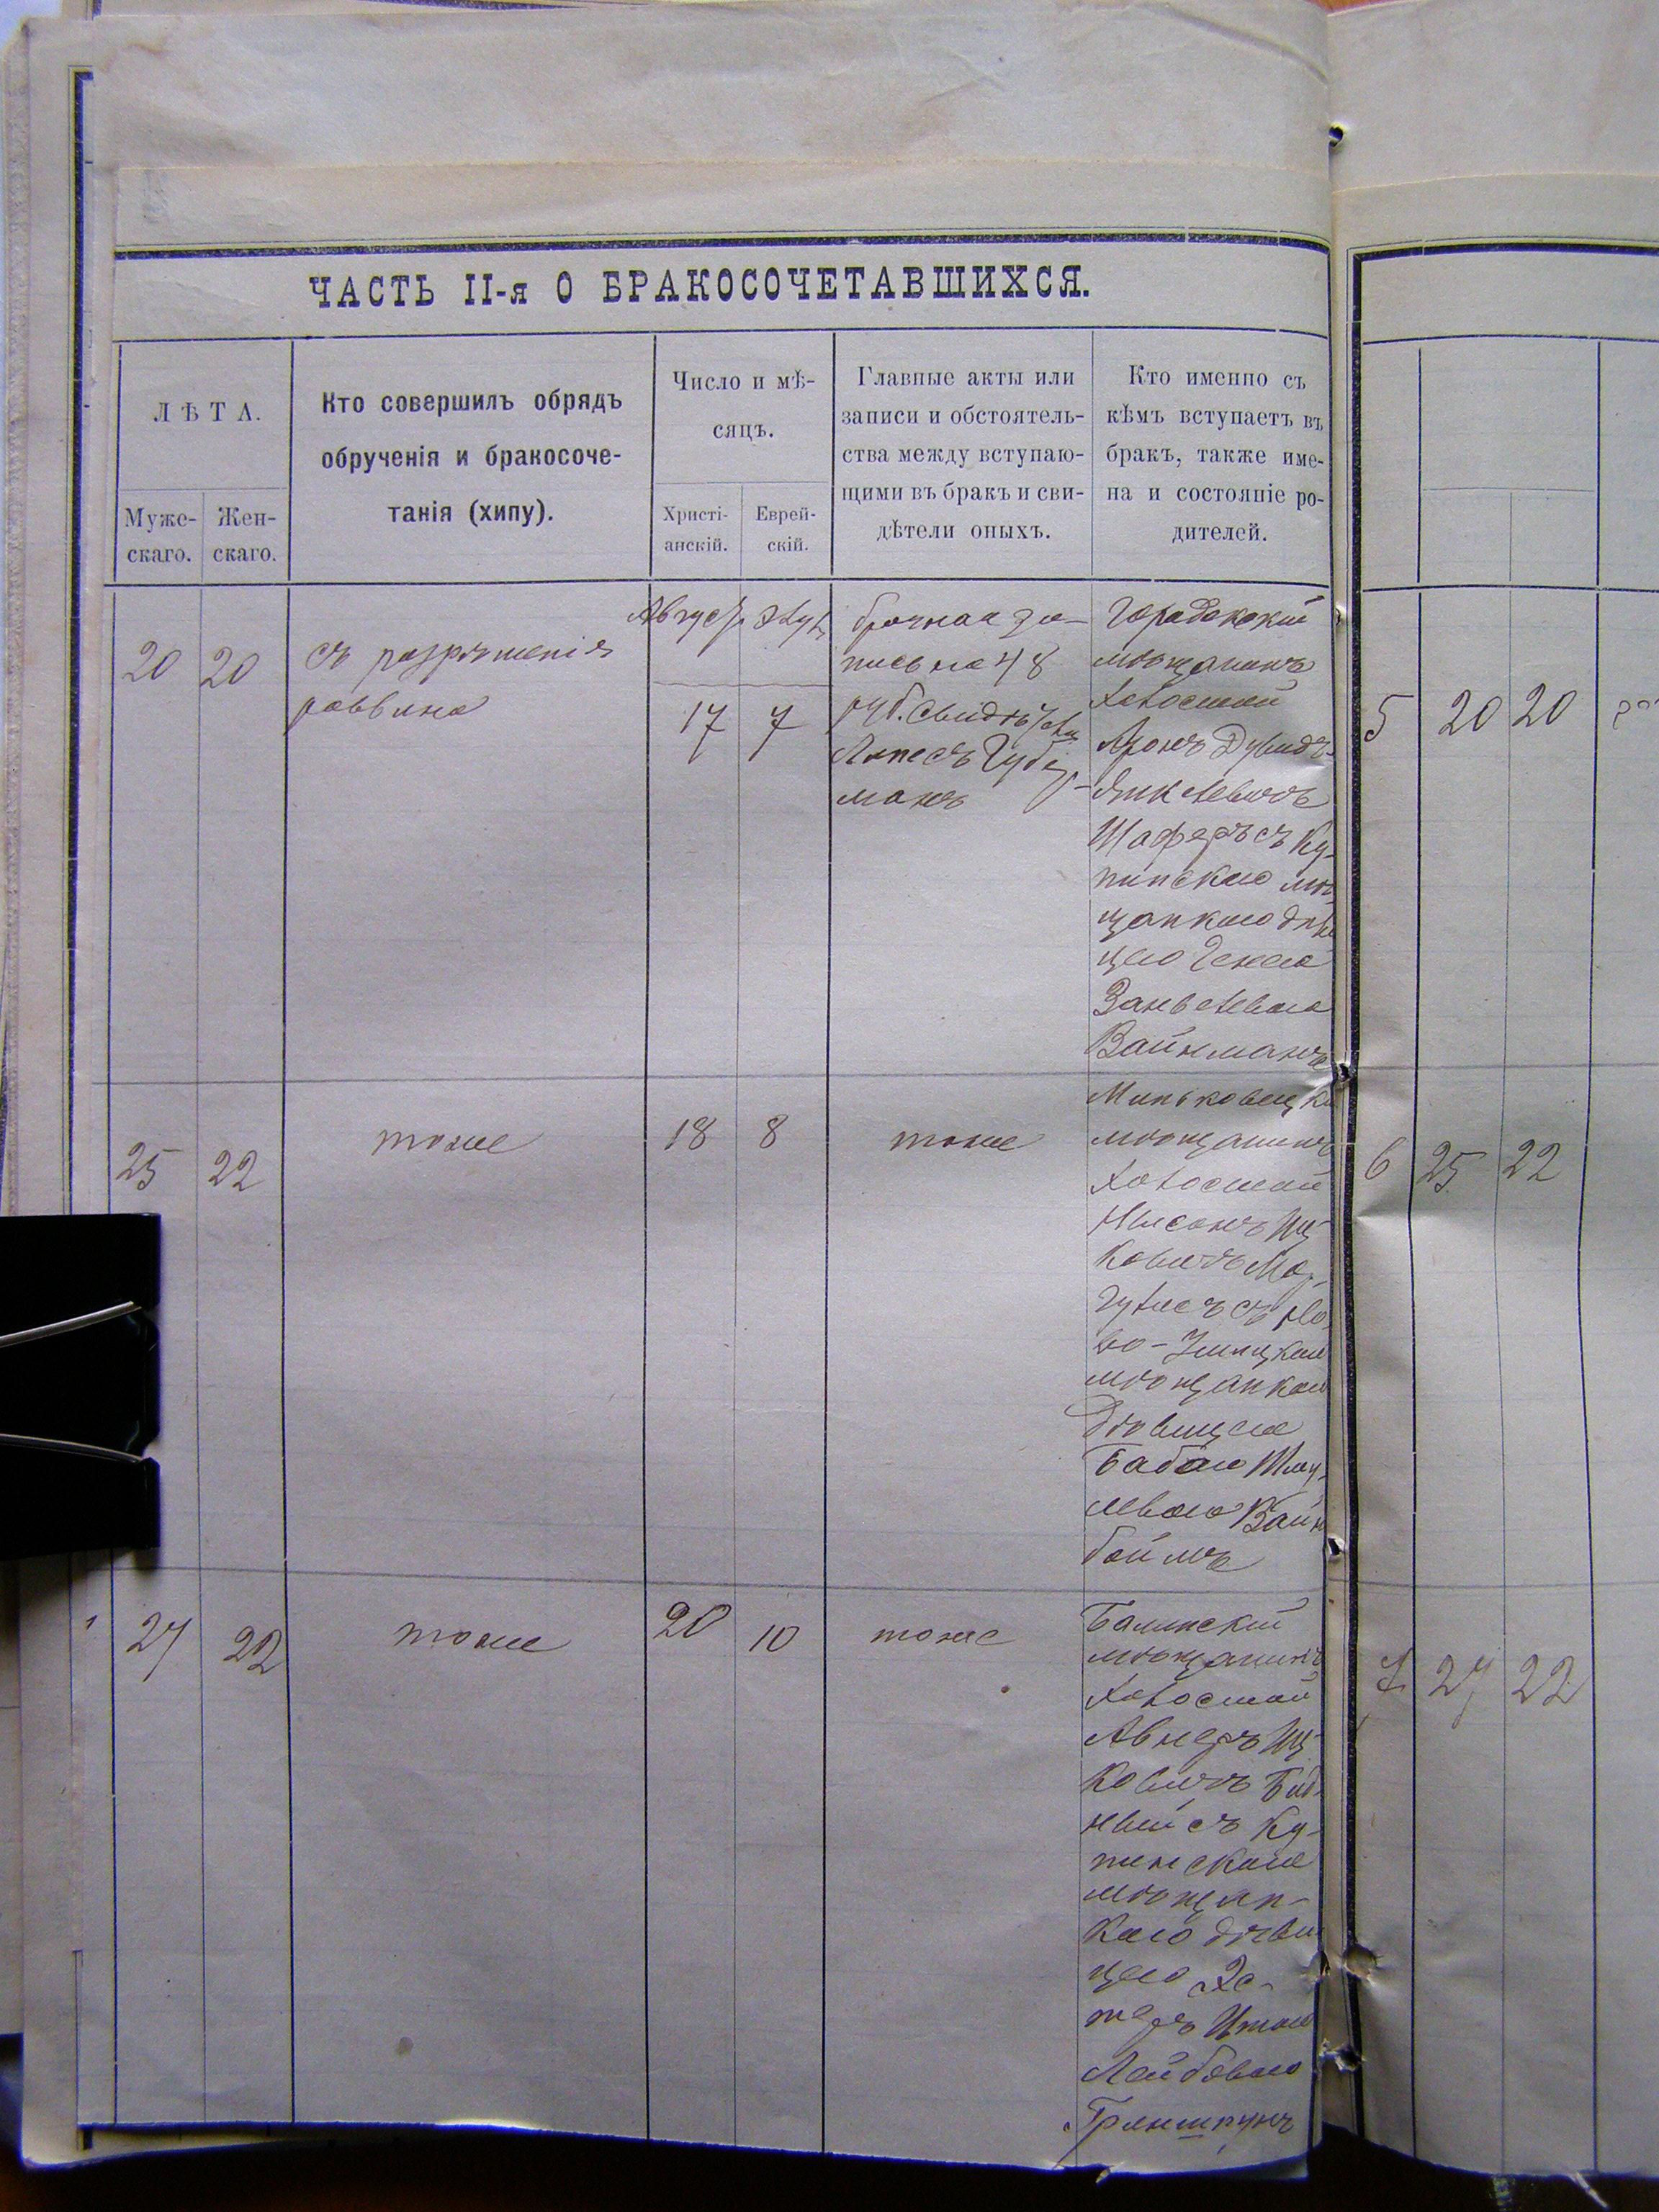 ЧАСТЬ II-я О БРАКОСОЧЕТАВШИХСЯ.
ЛѢТА.
Муже-
скаго.
Жен-
скаго.
Кто совершилъ обрядъ
обрученія и бракосоче-
танія (хипу).
Число и мѣ-
сяцъ.
Христі-
анскій.
Еврей-
скій.
Главные акты или
записи и обстоятель-
ства между вступаю-
щими въ бракъ и сви-
дѣтели оныхъ.
Кто именно съ
кѣмъ вступаетъ въ
бракъ, также име-
на и состояніе ро-
дителей.
20 20
съ разрѣшенія
раввина
Август
17 7
брачная за-
пись на 48
руб.
Городокскій
мѣщанинъ
холостой
Аронъ Дувидъ-
Янкелевичъ
Шаферъ съ Ку-
пинскою мѣ
щанкою дѣв
цею
Занвелевою
Вайнманъ
25 22
тоже
18 8
тоже
Миньковецкі
мѣщанинъ
холостой
Нисонъ Иц-
ковичъ Мар-
гулисъ съ Но-
во-Ушицкою
мѣщанкою
дѣвицею
Бабою Шму-
левою Вайн
боймъ
27 22
тоже
20 10
тоже
Балинскій
мѣщанинъ
холостой
Авнеръ Иц-
ковичъ Бид-
ный съ Ку-
пинскою
мѣщан-
кою дѣви
цею Эс-
теръ Итою
Лейбовою
Гриншпунъ
5 20 20
6 25 22
7 27 22